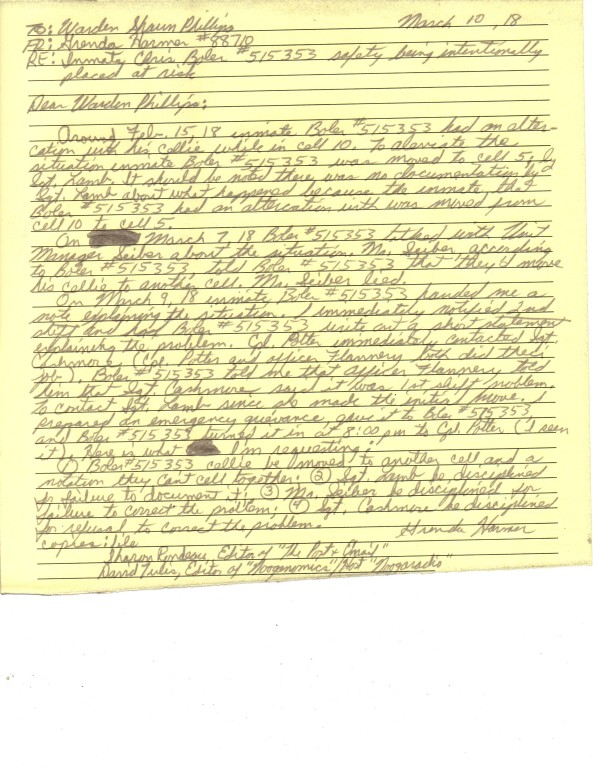 TO: Warden Shawn Phillips March 10, 18
FR: Grenda Harmer #88710
RE: Inmate Chris Boler #515353 safety being intentionally
placed at risk
Dear Warden Phillips:
Around Feb. 15, 18 inmate Boler #515353 had an alter-
cation with his cellie while in cell 10. To aleviate the
situation inmate Boler #515353 was moved to cell 5, by
Sgt. Lamb. It should be noted there was no documentation by
Sgt. Lamb about what happened because the inmate, that
Boler #515353 had an altercation with was moved from
cell 10 to cell 5.
On March 7, 18 Boler #515353 talked with Unit
Manager Seiber about the situation. Ms. Seiber according
to Boler #515353, told Boler #515353 that they'd move
his cellie to another cell. Ms. Seiber lied.
On March 9, 18 inmate Boler #515353 handed me a
note explaining the situation. I immediately notified 2nd
shift and had Boler #515353 write out a short statement
explaining the problem. Cpl. Potter immediately contacted Sgt.
Cashmore (Cpl. Potter and officer Flannery both did their
job.). Boler #515353 told me that officer Flannery told
him that Sgt. Cashmore said it was 1st shift problem,
to contact Sgt. Lamb since she made the initial move. I
prepared an emergency grievance, gave it to Boler #515353,
and Boler #515353 turned it in at 8:00 pm to Cpl. Potter (I seen
it). Here is what I'm requesting:
① Boler #515353 cellie be moved to another cell and a
notation they can't cell together; ② Sgt. Lamb be disciplined
for failure to document it; ③ Ms. Seiber be disciplined for
failure to correct the problem; ④ Sgt. Cashmore be disciplined
for refusal to correct the problem.
Grenda Harmer
copies: file
Sharon Rondeau, Editor of "The Post & Email"
David Tulis, Editor of "Nooganomics"/Host "Noogaradio"